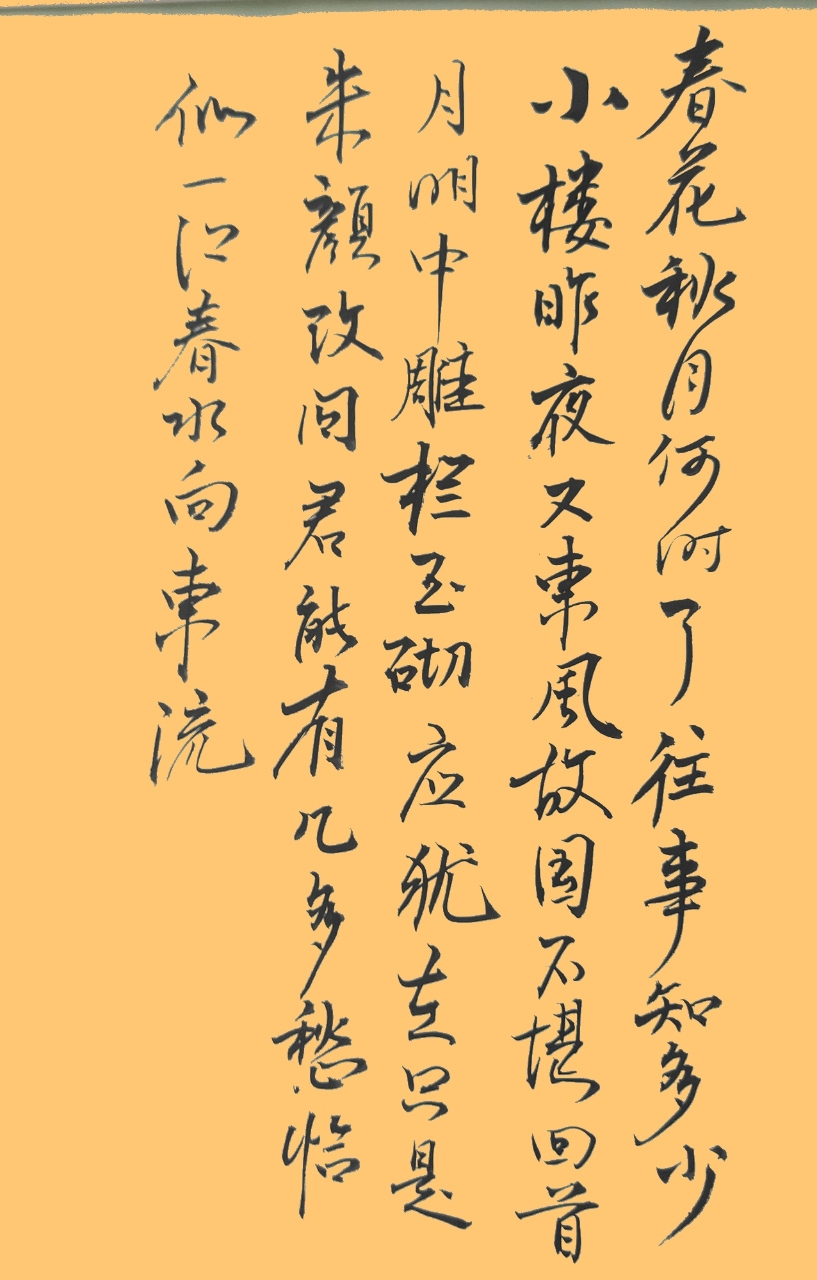 春花秋月何时了往事知多少
小楼昨夜又東風故国不堪回首
月明中雕栏玉砌应犹在只是
朱颜改问君能有几多愁恰
似一江春水向東流